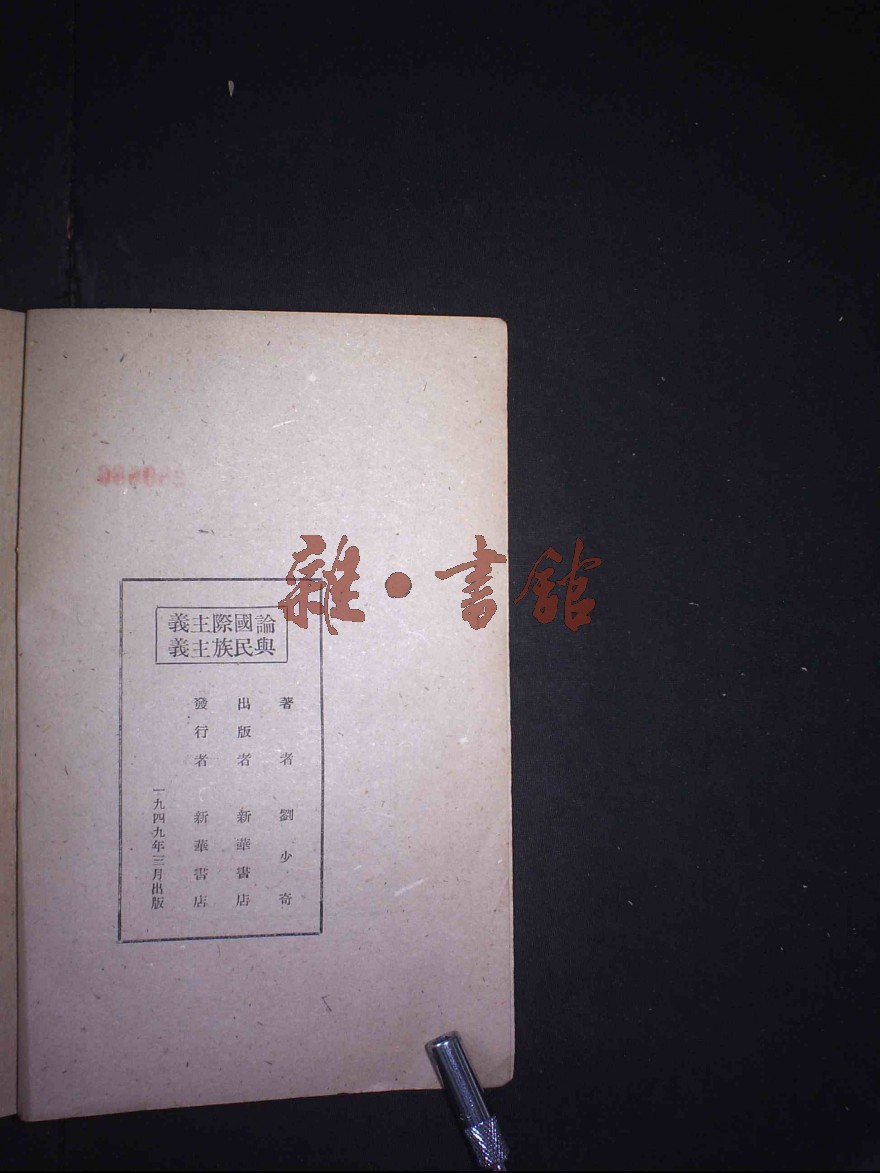 雜·書館
論國際主義
與民族主義
著者 劉少奇
出版者 新華書店
發行者 新華書店
一九四九年三月出版